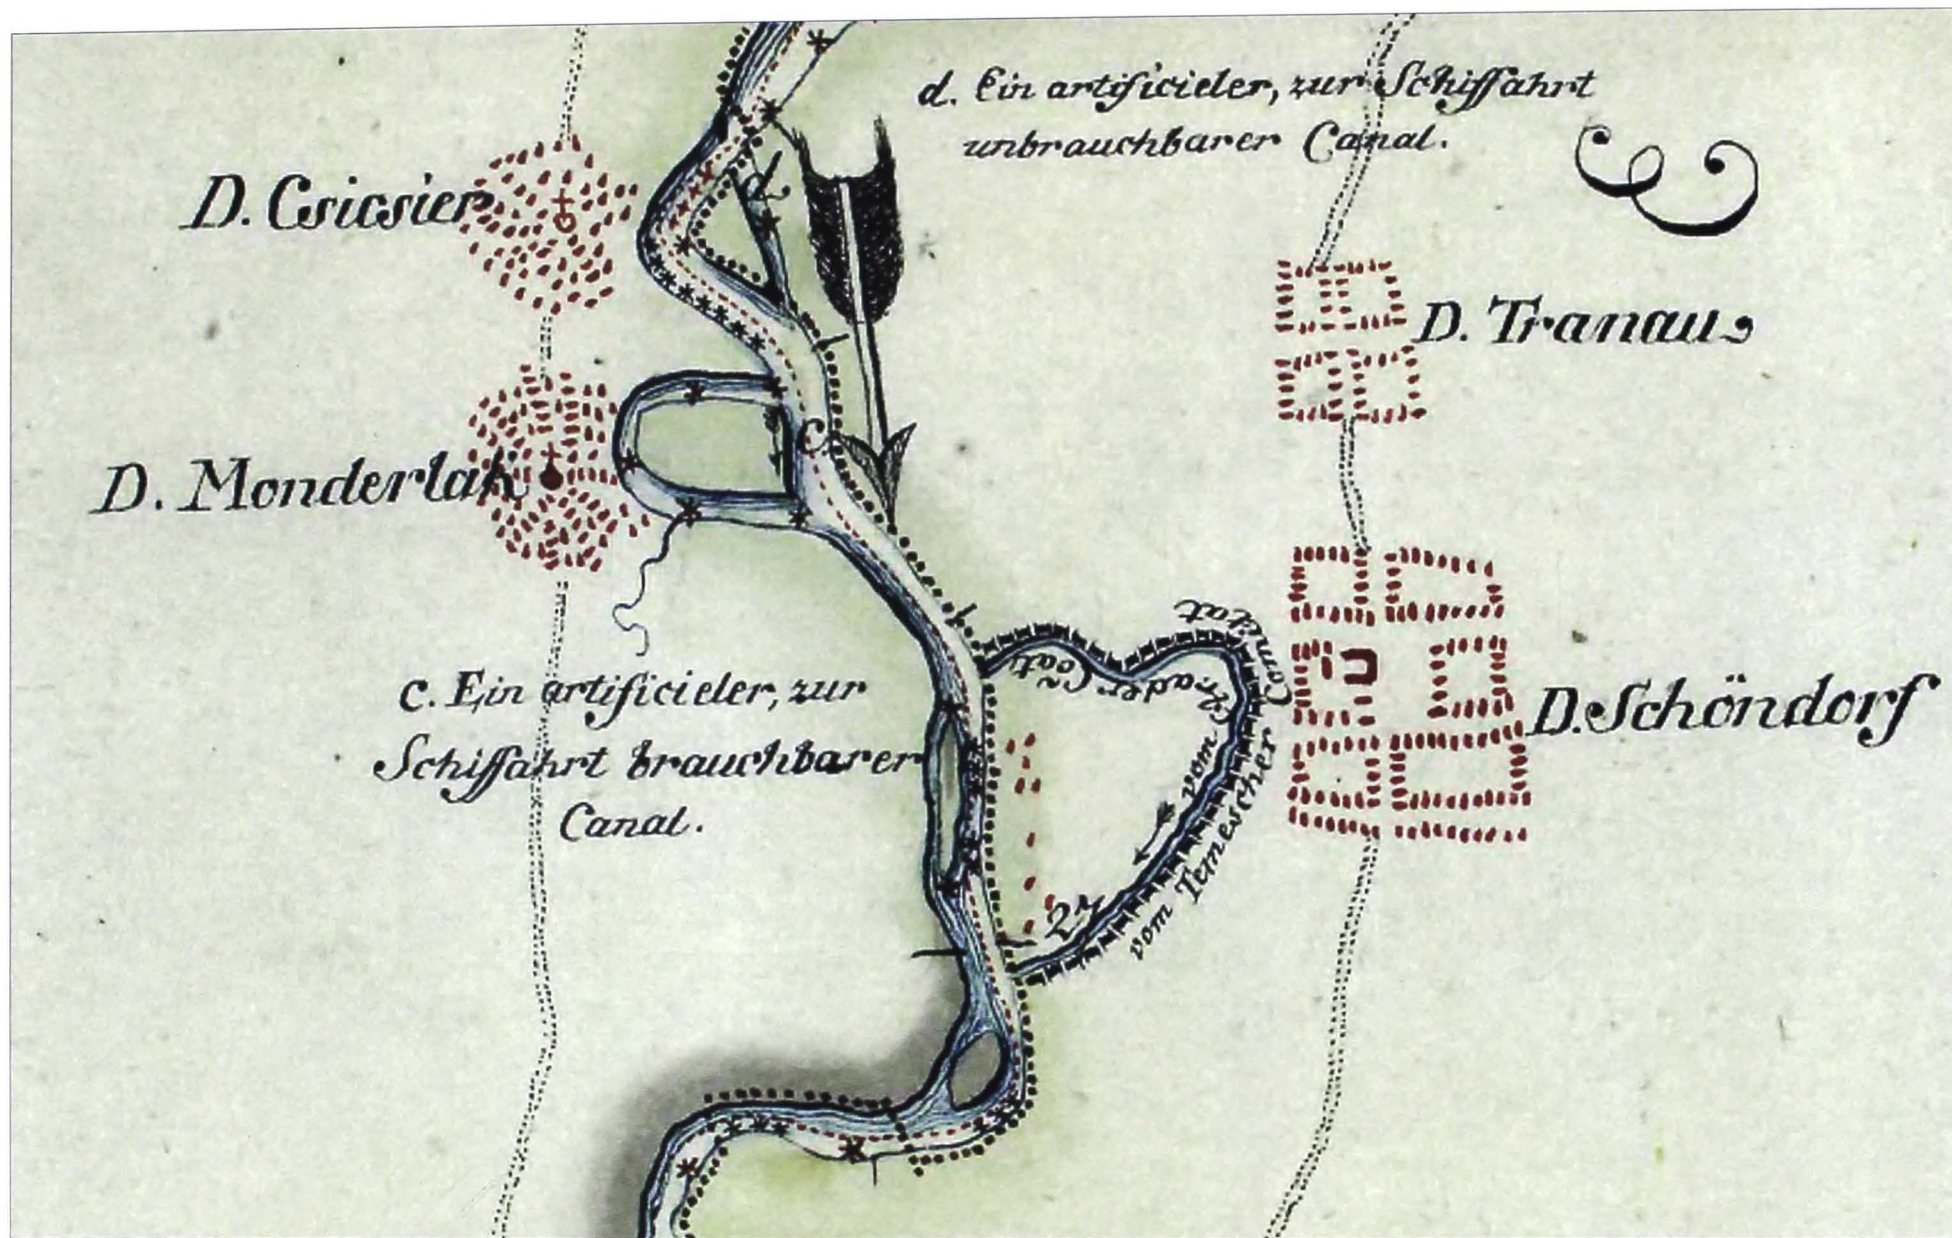 d. Ein artificieler, zur Schiffahrt
unbrauchbarer Canal.
D. Csicsier
d
D. Tranau
D. Monderlak
c
c. Ein artificieler, zur
Schiffahrt brauchbarer
Canal.
vom Arader Coāt
vom Temescher Comitat
27
D. Schöndorf